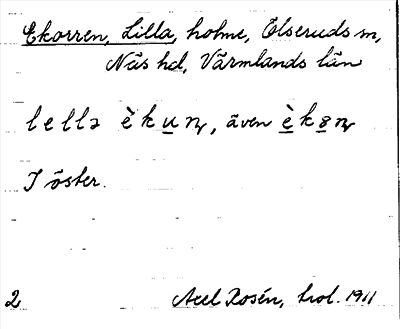 Ekorren, Lilla, holme, Ölseruds sn,
Näs hd, Värmlands län
lellə èkun, även èkɵn
I öster.
2 Axel Rosén, hol. 1911